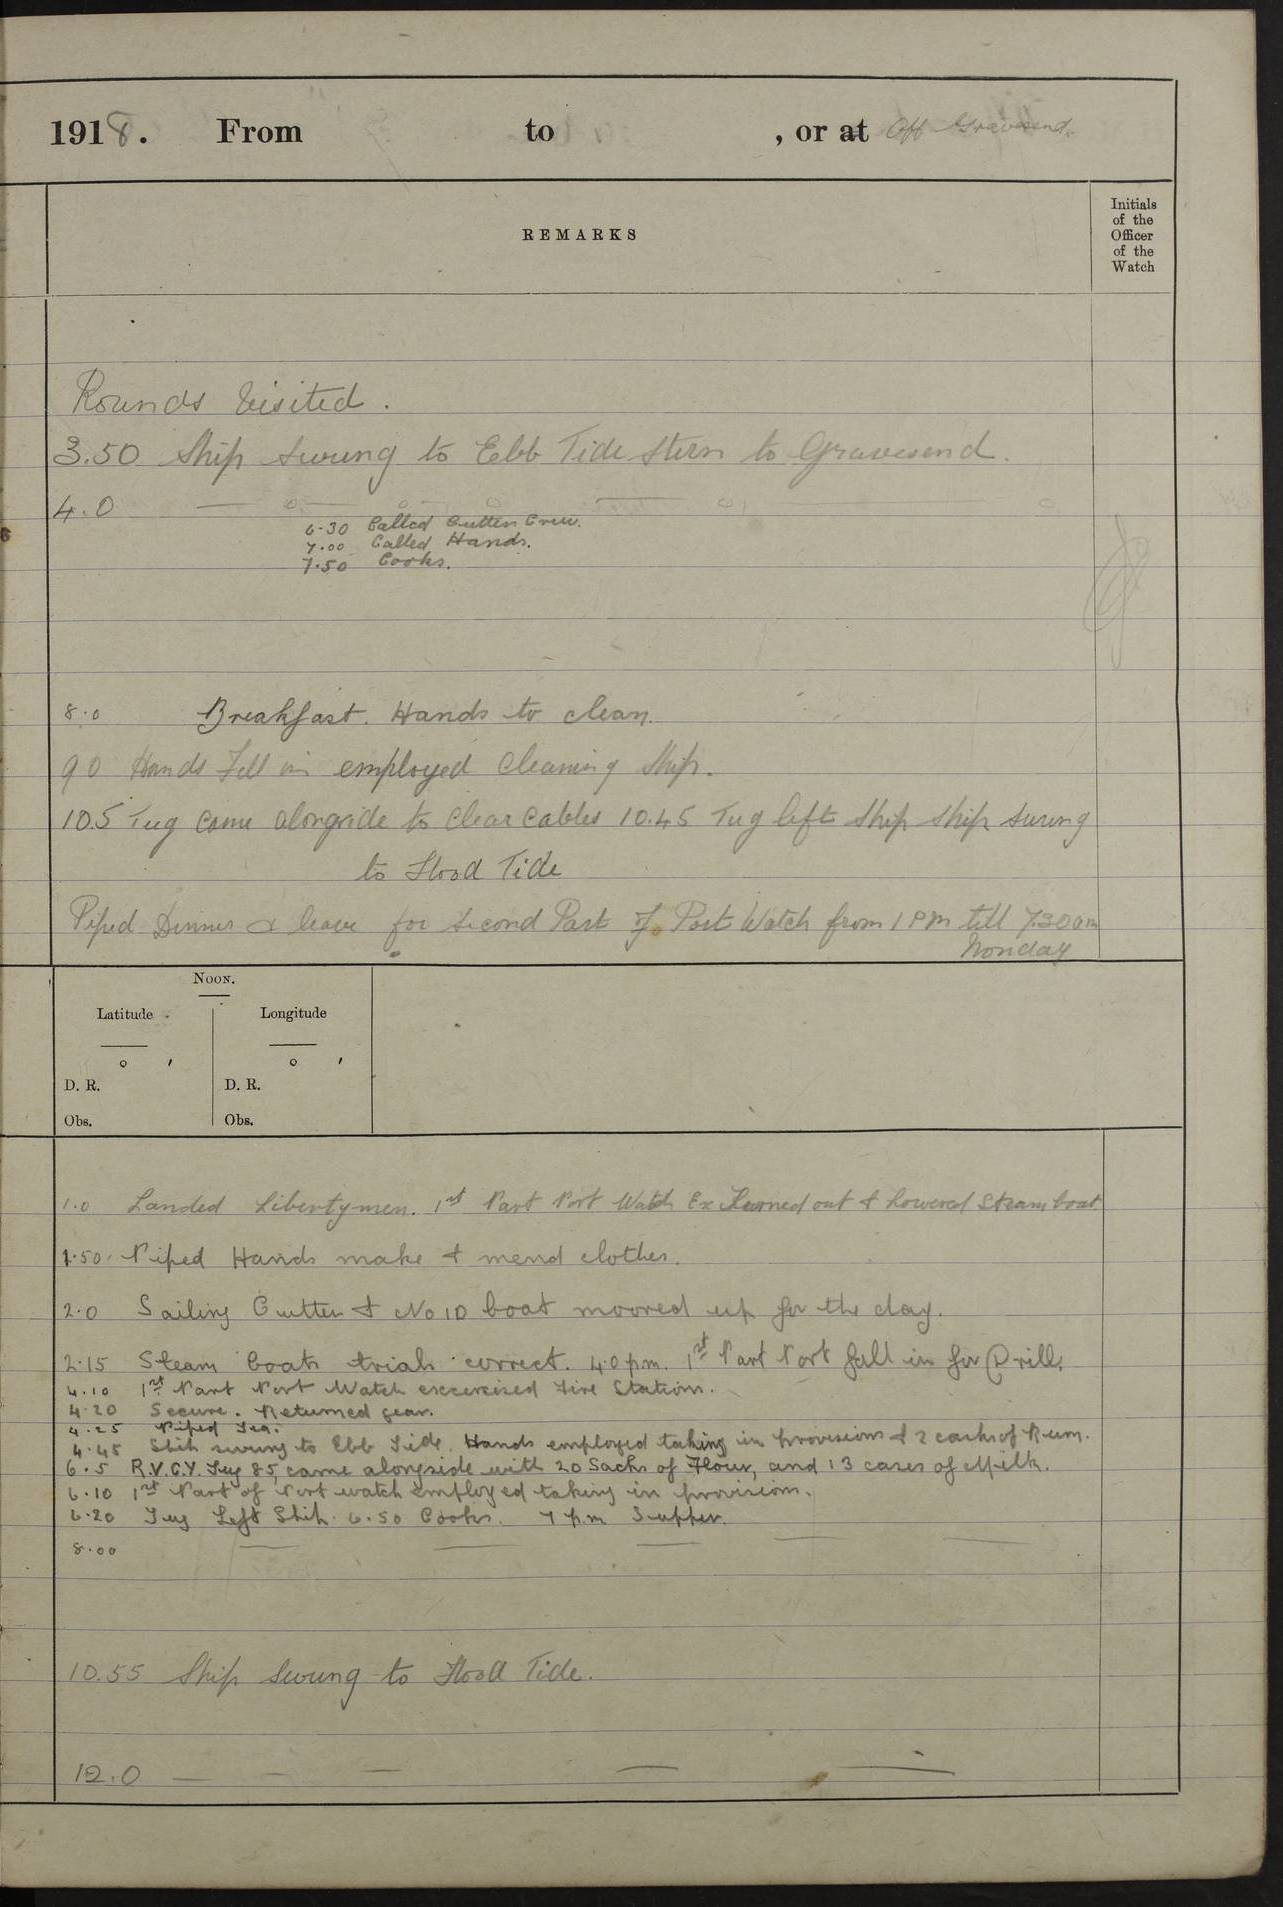 1918. From to , or at Off Gravesend.
REMARKS
Initials
of the
Officer
of the
Watch
Rounds Visited.
3.50 Ship Swung to Ebb Tide Stern to Gravesend.
4.0
6.30 Called Cutters Crew.
7.00 Called Hands.
7.50 Cooks.
8.0 Breakfast. Hands to clean.
9 0 Hands Fell in employed Cleaning Ship.
10.5 Tug came alongside to clear cables 10.45 Tug left Ship Ship Swung
to Flood Tide
Piped Dinner & leave for Second Part of Port Watch from 1 PM till 7.30 am
Monday
NOON.
Latitude Longitude
° ′ ° ′
D. R. D. R.
Obs. Obs.
1.0 Landed Libertymen. 1st Part Port Watch Ex turned out & Lowered Steam boat
1.50 Piped Hands make & mend clothes.
2.0 Sailing Cutter & No 10 boat moored up for the day.
2.15 Steam boats trials correct. 4.0 p.m. 1st Part Port fall in for Drill.
4.10 1st Part Port Watch excercised Fire Stations.
4.20 Secure. Returned gear.
4.25 Piped Tea.
4.45 Ship swung to Ebb Tide. Hands employed taking in provisions & 2 casks of Rum.
6.5 R.V.C.Y. Tug 85 came alongside with 20 Sacks of Flour, and 13 cases of Milk.
6.10 1st Part of Port watch employed taking in provisions.
6.20 Tug Left Ship. 6.50 Cooks. 7 p.m Supper.
8.00
10.55 Ship Swung to Flood Tide.
12.0